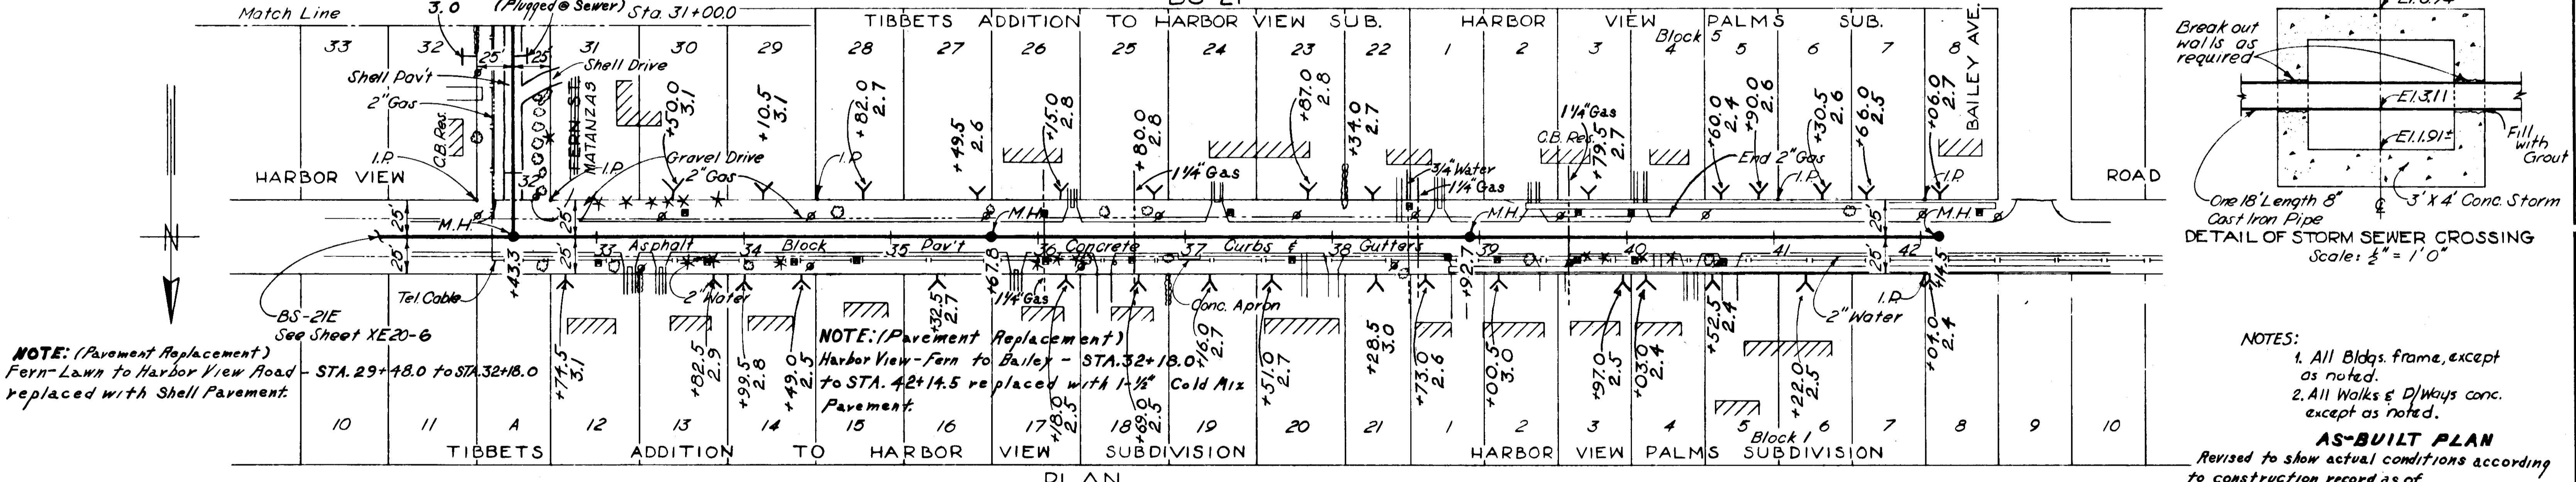 Match Line
3.0
(Plugged @ Sewer)
Sta. 31+00.0
TIBBETS ADDITION TO HARBOR VIEW SUB.
HARBOR VIEW PALMS SUB.
Block 5
33 32 31 30 29 28 27 26 25 24 23 22 1 2 3 4 5 6 7 8
BAILEY AVE.
25' 25'
Shell Drive
Shell Pav't
2" Gas
C.B. Res.
FERN ST.
MATANZAS
+50.0
3.1
+10.5
3.1
+82.0
2.7
+49.5
2.6
+15.0
2.8
+80.0
2.8
+87.0
2.8
+34.0
2.7
1¼" Gas
C.B. Res.
+79.5
2.7
+60.0
2.4
+90.0
2.6
+30.5
2.6
+66.0
2.5
+06.0
2.7
I.P.
I.P.
Gravel Drive
2" Gas
I.P.
1¼" Gas
3/4" Water
1¼" Gas
End 2" Gas
I.P.
I.P.
HARBOR VIEW
ROAD
32
25'
25'
M.H.
M.H.
M.H.
M.H.
25'
N
33 Asphalt 34 Block 35 Pav't 36 Concrete 37 Curbs & 38 Gutters 39 40 41 42
25'
25'
25'
+43.3
+67.8
+92.7
+14.5
Tel. Cable
2" Water
1¼" Gas
Conc. Apron
2" Water
I.P.
BS-21E
See Sheet XE20-6
NOTE: (Pavement Replacement)
Fern-Lawn to Harbor View Road - STA. 29+48.0 to STA. 32+18.0
replaced with Shell Pavement.
NOTE: (Pavement Replacement)
Harbor View-Fern to Bailey - STA. 32+18.0
to STA. 42+14.5 replaced with 1-½" Cold Mix
Pavement.
+74.5
3.1
+82.5
2.9
+99.5
2.8
+49.0
2.5
+32.5
2.7
+18.0
2.5
+69.0
2.5
+16.0
2.7
+51.0
2.7
+28.5
3.0
+73.0
2.6
+00.5
3.0
+97.0
2.5
+03.0
2.4
+52.5
2.4
+22.0
2.5
+04.0
2.4
10 11 A 12 13 14 15 16 17 18 19 20 21 1 2 3 4 5 6 7 8 9 10
Block 1
TIBBETS ADDITION TO HARBOR VIEW SUBDIVISION
HARBOR VIEW PALMS SUBDIVISION
PLAN
Break out
walls as
required
El. 3.11
El. 1.91±
Fill
with
Grout
One 18' Length 8"
Cast Iron Pipe
3' X 4' Conc. Storm
DETAIL OF STORM SEWER CROSSING
Scale: ½" = 1'0"
NOTES:
1. All Bldgs. frame, except
as noted.
2. All Walks & D/Ways conc.
except as noted.
AS-BUILT PLAN
Revised to show actual conditions according
to construction record as of